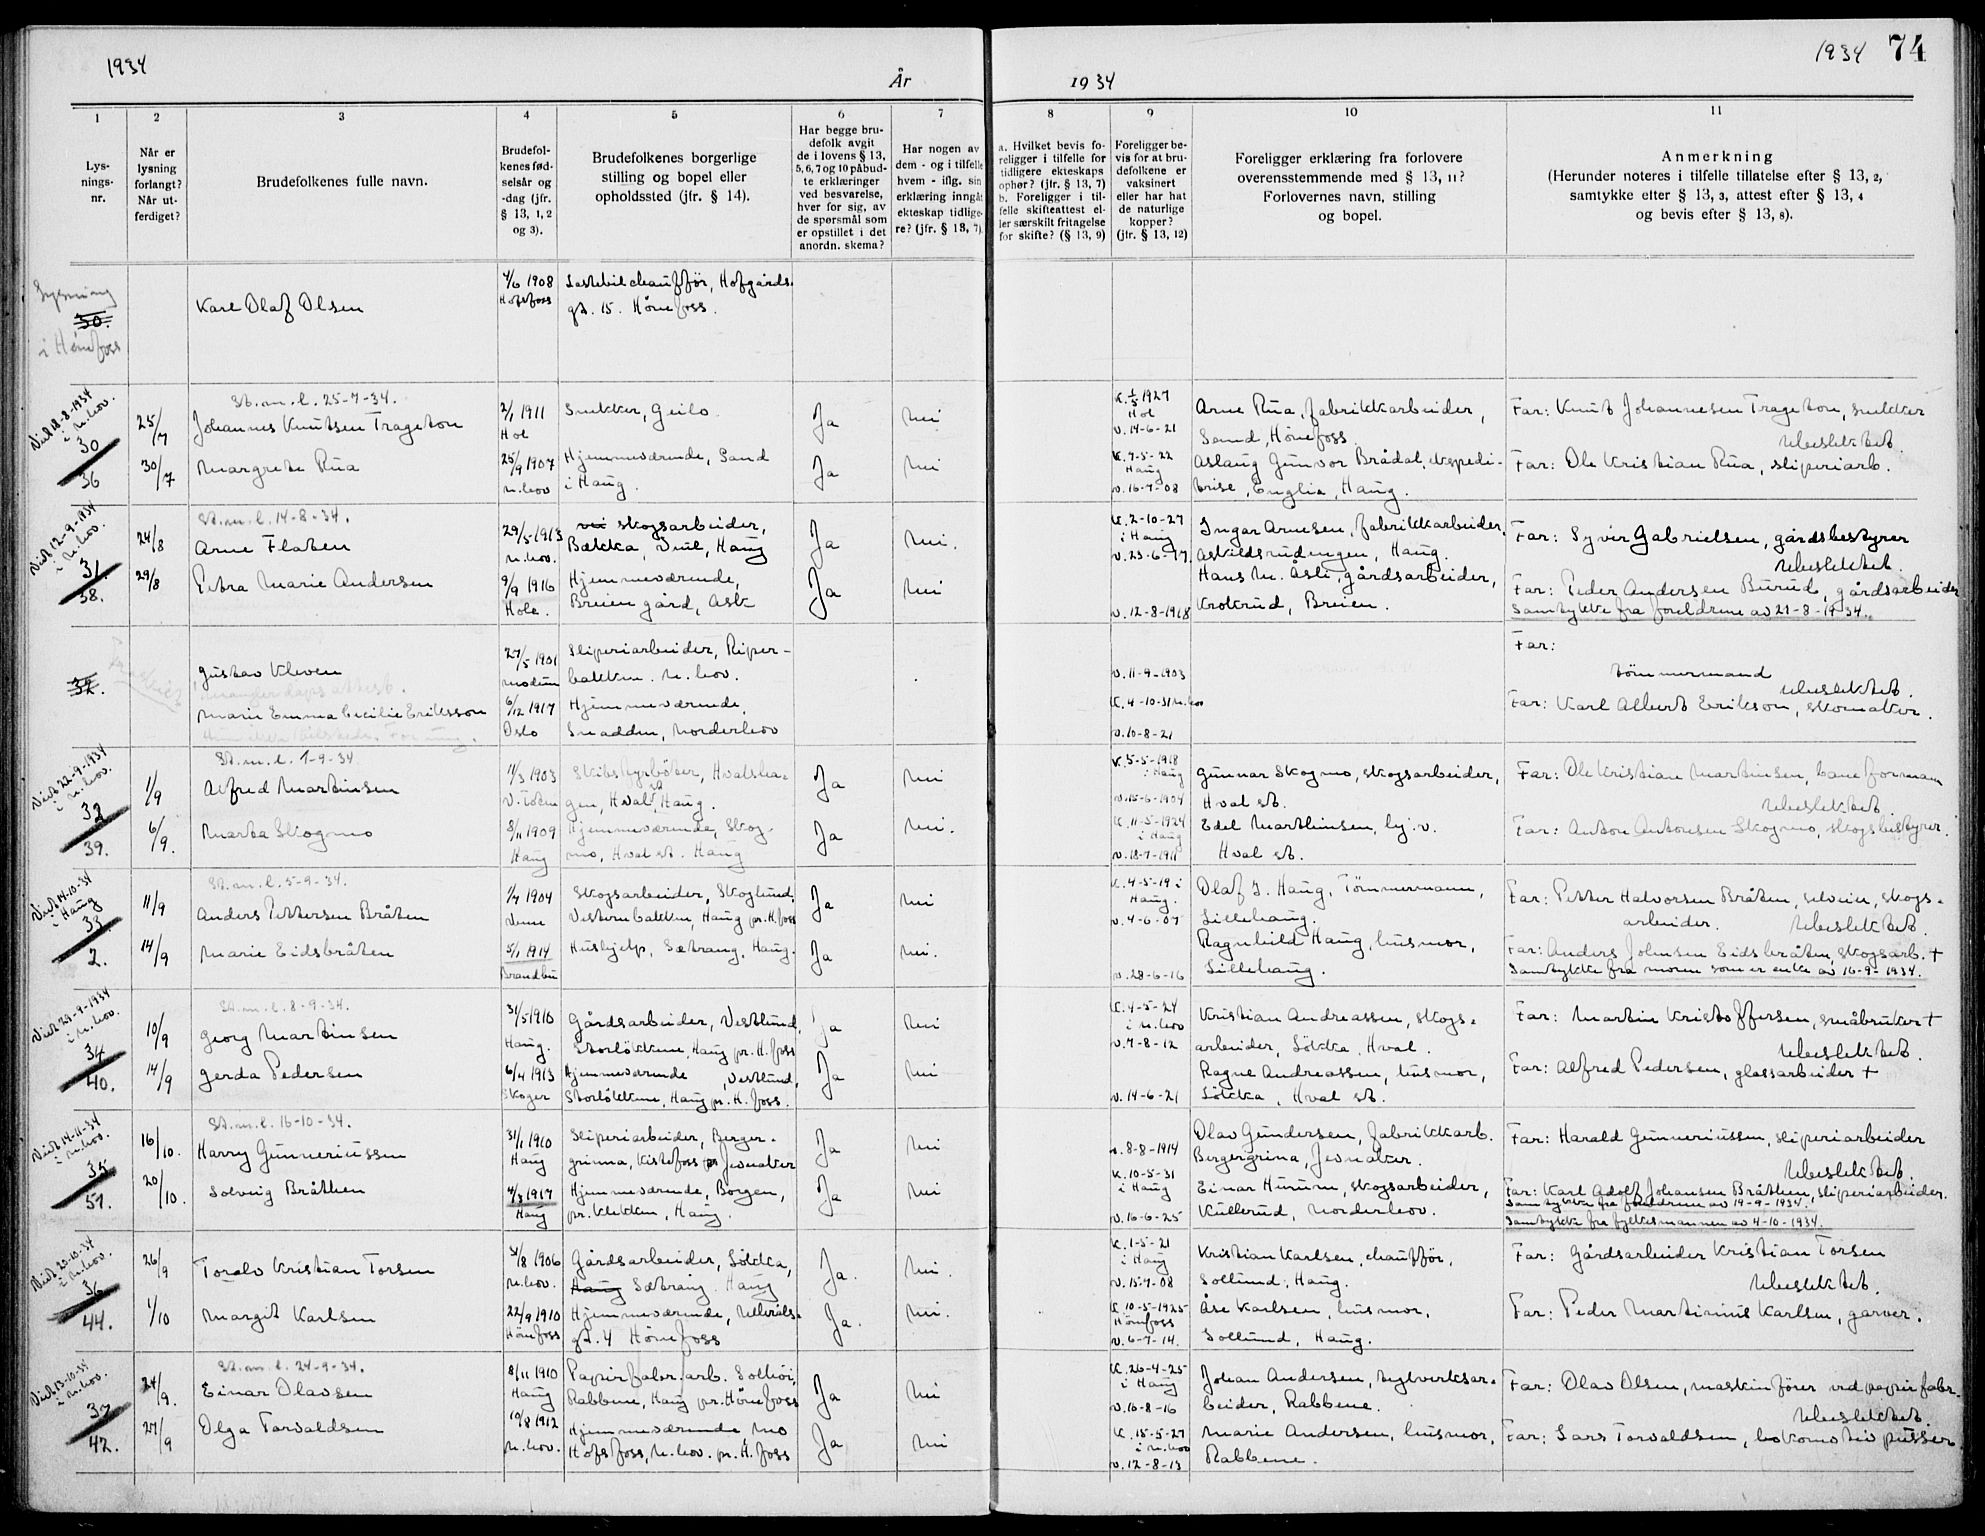 1934
År
1934
1934 74
1
Lys-
nings-
nr.
2
Når er
lysning
forlangt?
Når ut-
ferdiget?
3
Brudefolkenes fulle navn.
4
Brudefol-
kenes fød-
selsår og
-dag (jfr.
§ 13, 1, 2
og 3).
5
Brudefolkenes borgerlige
stilling og bopel eller
opholdssted (jfr. § 14).
6
Har begge bru-
defolk avgit
de i lovens § 13,
5, 6, 7 og 10 påbud-
te erklæringer
ved besvarelse,
hver for sig, av
de spørsmål som
er opstillet i det
anordn. skema?
7
Har nogen av
dem - og i tilfelle
hvem - iflg. sin
erklæring inngåt
ekteskap tidlige-
re? (jfr. § 13, 7).
8
a. Hvilket bevis fo-
religger i tilfelle for
tidligere ekteskaps
ophør? (jfr. § 13, 7)
b. Foreligger i til-
felle skifteattest el-
ler særskilt fritagelse
for skifte? (§ 13, 9)
9
Foreligger be-
vis for at bru-
defolkene er
vaksinert
eller har hat
de naturlige
kopper?
(jfr. § 13, 12)
10
Foreligger erklæring fra forlovere
overensstemmende med § 13, 11?
Forlovernes navn, stilling
og bopel.
11
Anmerkning
(Herunder noteres i tilfelle tillatelse efter § 13, 2,
samtykke efter § 13, 3, attest efter § 13, 4
og bevis efter § 13, 8).
Lysning
50.
i Hønefoss
Karl Olaf Olsen
4/6 1908
Hofsfoss
Lastebilchauffør, Hofgårds-
gt. 15. Hønefoss.
Viet 18-8-1934
i N.hov.
30
36
25/7
30/7
St.m.l. 25-7-34.
Johannes Knutsen Trageton
Margrete Rua
2/1 1911
Hol
25/9 1907
N.hov
Snekker, Geilo
Hjemmeværende, Sand
i Haug.
Ja
Ja
Nei
Nei
K. 1/5 1927
Hol
v. 14-6-21
K. 7-5-22
Haug
v. 16-7-08
Arne Rua, fabrikkarbeider,
Sand, Hønefoss
Aslaug Gunvor Brådal, ekspedi-
trise, Englia, Haug.
Far: Knut Johannesen Trageton, snekker
Ubeslektet
Far: Ole Kristian Rua, sliperiarb.
Viet 12-9-1934
i N.hov.
31
38.
24/8
29/8
St.m.l. 14-8-34.
Arne Flaten
Petra Marie Andersen
29/5-1913
N.hov.
9/9 1916
Hole.
skogsarbeider,
Bakka, Viul, Haug
Hjemmeværende,
Breien gård, Ask
Ja
Ja
Nei.
Nei
K. 2-10-27
i Haug
v. 23-6-17.
v. 12-8-1918
Ingar Arnesen, fabrikkarbeider,
Askildsrudengen, Haug.
Hans M. Åsli, gårdsarbeider,
Krokrud, Breien.
Far: Syver Gabrielsen, gårdsbestyrer
Ubeslektet.
Far: Peder Andersen Burud, gårdsarbeider
Samtykke fra foreldrene av 21-8-1934.
32.
Gustav Kleven
mangler dåpsattest.
Marie Emma Cecilie Eriksson
27/5 1901
Modum
6/12 1917
Oslo
Sliperiarbeider, Riper-
bakken. N.hov.
Hjemmeværende.
Snadden, Norderhov
v. 11-9-1903
K. 4-10-31 N.hov
v. 10-8-21
Far:
tømmermand
Ubeslektet.
Far: Karl Albert Erikson, skomaker.
Viet 22-9-1934
i N.hov.
32
39.
1/9
6/9.
St.m.l. 1-9-34
Alfred Martinsen
Marta Skogmo
11/3 1903
V. Toten
8/11 1909
Haug
Skibsfyrbøter, Hvalsha-
gen, Hval st Haug.
Hjemmeværende, Skog-
mo, Hval st. Haug
Ja
Ja
Nei
Nei.
K. 5-5-1918
i Haug
v. 15-6-1904
K. 11-5-1924
i Haug
v. 18-7-1911
Gunnar Skogmo, skogsarbeider,
Hval st.
Edel Marthinsen, hj. v.
Hval st.
Far: Ole Kristian Martinsen, baneformann
Ubeslektet.
Far: Anton Antonsen Skogmo, skogsbestyrer.
Viet 14-10-34
i Haug
33
2.
11/9
14/9
St.m.l. 5-9-34.
Anders Pettersen Bråten
Marie Eidsbråten
1/4 1904
5/1 1914
Brandbu
Skogsarbeider, Skoglund,
Vesternbakken, Haug pr. H.foss
Hushjelp, Sætrang, Haug.
Ja
Ja
Nei
Nei.
K. 4-5-19 i
Haug.
v. 4-6-07
v. 28-6-16
Olaf J. Haug, Tømmermann,
Lillehaug.
Ragnhild Haug, husmor,
Lillehaug.
Far: Petter Halvorsen Bråten, selveier, skogs-
arbeider. Ubeslektet.
Far: Anders Johnsen Eidsbråten, skogsarb. +
Samtykke fra moren som er enke av 16-9-1934.
Viet 29-9-1934
i N.hov.
34
40.
10/9
14/9
St.m.l. 8-9-34.
Georg Martinsen
Gerda Pedersen
31/5 1910
Haug.
6/4 1913
Skoger
Gårdsarbeider, Vestlund,
Storløkken, Haug pr. H.foss
Hjemmeværende, Vestlund,
Storløkken, Haug pr. H.foss.
Ja
Ja
Nei
Nei
K. 4-5-24
i N.hov
v. 7-8-12
v. 14-6-21
Kristian Andreassen, skogs-
arbeider, Løkka, Hval.
Ragne Andreassen, husmor,
Løkka, Hval st.
Far: Martin Kristoffersen, småbruker +
Ubeslektet.
Far: Alfred Pedersen, glassarbeider +
Viet 14-11-34
i N.hov.
35
51.
16/10.
20/10.
St.m.l. 16-10-34.
Harry Gunneriussen
Solveig Bråthen
31/1 1910
Haug
4/3 1917
Haug
Sliperiarbeider, Berger-
grinna, Kistefoss pr Jevnaker
Hjemmeværende, Borgen,
pr. Klekken, Haug.
Ja
Ja
Nei
Nei
v. 8-8-1914
K. 10-5-31
i Haug
v. 16-6-25
Olav Gundersen, fabrikkarb.
Bergergrina, Jevnaker.
Einar Hurum, skogsarbeider,
Kullerud, Norderhov.
Far: Harald Gunneriussen, sliperiarbeider
Ubeslektet.
Far: Karl Adolf Johansen Bråthen, sliperiarbeider.
Samtykke fra foreldrene av 19-9-1934.
Samtykke fra fylkesmannen av 4-10-1934.
Viet 20-10-34
i N.hov.
36
44.
26/9
1/10
Toralv Kristian Torsen
Margit Karlsen
31/8 1906
N.hov.
22/9 1910
Hønefoss
Gårdsarbeider, Løkka,
Haug Sætrang. Haug
Hjemmeværende, Ulleråls-
gt. 4 Hønefoss
Ja.
Ja.
Nei.
Nei.
K. 1-5-21
i Haug
v. 15-7-08
K. 10-5-1925
Hønefoss
v. 6-7-14.
Kristian Karlsen, chauffør,
Sollund, Haug.
Åse Karlsen, husmor,
Sollund, Haug.
Far: Gårdsarbeider Kristian Torsen
Ubeslektet.
Far: Peder Martinius Karlsen, garver.
Viet 13-10-34
i N.hov.
37
42.
24/9.
27/9
St.m.l. 24-9-34.
Einar Olavsen
Olga Torvaldsen
8/11 1910
Haug
19/8 1912
N.hov.
Papirfabr.arb. Solhøi,
Rabbene, Haug pr. Hønefoss
Hjemmeværende Mo
Hofsfoss, N.hov. pr. H.foss
Ja
Ja
Nei
Nei
K. 26-4-25
i Haug
v. 16-8-16
K. 15-5-27
i N.hov
v. 12-8-13
Johan Andersen, teglverksar-
beider, Rabbene.
Marie Andersen, husmor,
Rabbene.
Far: Olav Olsen, maskinfører ved papirfabr.
Ubeslektet.
Far: Lars Torvaldsen, lokomotivpusser